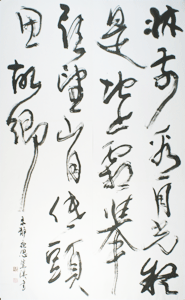 牀前看月光疑
是地上霜舉
頭望山月低頭
思故鄉
静夜思